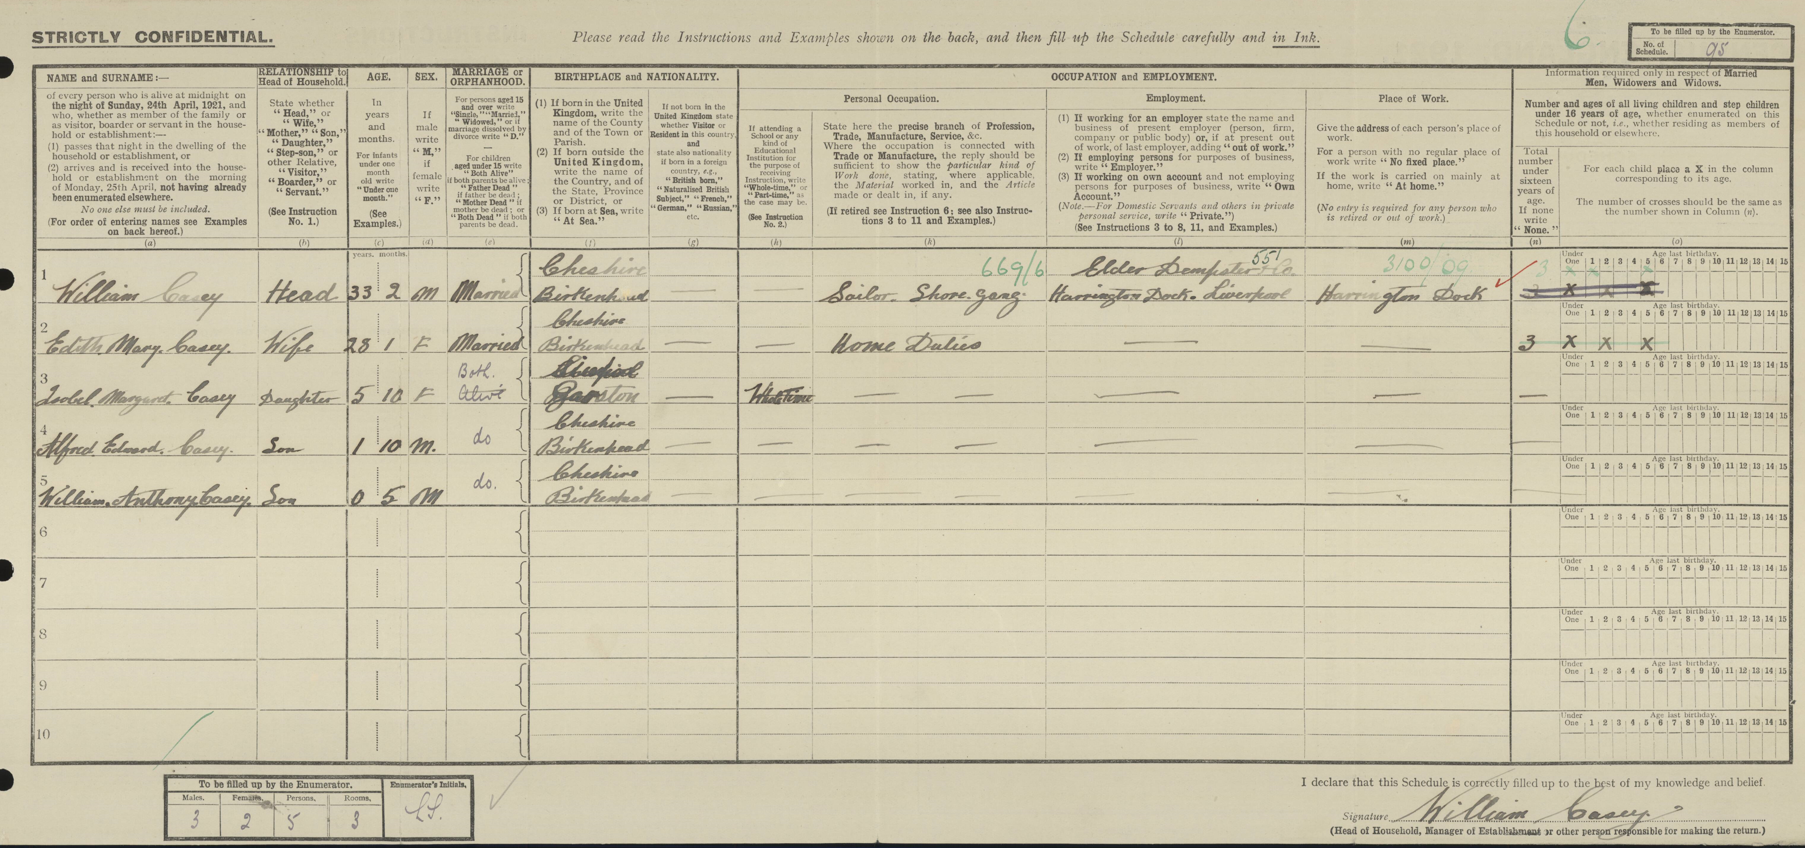 STRICTLY CONFIDENTIAL.
Please read the Instructions and Examples shown on the back, and then fill up the Schedule carefully and in Ink.
6
To be filled up by the Enumerator.
No. of Schedule. 95
NAME and SURNAME:—
of every person who is alive at midnight on
the night of Sunday, 24th April, 1921, and
who, whether as member of the family or
as visitor, boarder or servant in the house-
hold or establishment:—
(1) passes that night in the dwelling of the
household or establishment, or
(2) arrives and is received into the house-
hold or establishment on the morning
of Monday, 25th April, not having already
been enumerated elsewhere.
No one else must be included.
(For order of entering names see Examples
on back hereof.)
(a)
RELATIONSHIP to
Head of Household.
State whether
"Head," or
"Wife,"
"Mother," "Son,"
"Daughter,"
"Step-son," or
other Relative,
"Visitor,"
"Boarder," or
"Servant."
(See Instruction
No. 1.)
(b)
AGE.
In
years
and
months.
For infants
under one
month
old write
"Under one
month."
(See
Examples.)
(c)
SEX.
If
male
write
"M,"
if
female
write
"F."
(d)
MARRIAGE or
ORPHANHOOD.
For persons aged 15
and over write
"Single," "Married,"
"Widowed," or if
marriage dissolved by
divorce write "D."
For children
aged under 15 write
"Both Alive"
if both parents be alive;
"Father Dead"
if father be dead;
"Mother Dead" if
mother be dead; or
"Both Dead" if both
parents be dead.
(e)
BIRTHPLACE and NATIONALITY.
(1) If born in the United
Kingdom, write the
name of the County
and of the Town or
Parish.
(2) If born outside the
United Kingdom,
write the name of
the Country, and of
the State, Province
or District, or
(3) If born at Sea, write
"At Sea."
(f)
If not born in the
United Kingdom state
whether Visitor or
Resident in this country,
and
state also nationality
if born in a foreign
country, e.g.,
"British born,"
"Naturalised British
Subject," "French,"
"German," "Russian,"
etc.
(g)
OCCUPATION and EMPLOYMENT.
If attending a
School or any
kind of
Educational
Institution for
the purpose of
receiving
Instruction, write
"Whole-time," or
"Part-time," as
the case may be.
(See Instruction
No. 2.)
(h)
Personal Occupation.
State here the precise branch of Profession,
Trade, Manufacture, Service, &c.
Where the occupation is connected with
Trade or Manufacture, the reply should be
sufficient to show the particular kind of
Work done, stating, where applicable,
the Material worked in, and the Article
made or dealt in, if any.
(If retired see Instruction 6; see also Instruc-
tions 3 to 11 and Examples.)
(k)
Employment.
(1) If working for an employer state the name and
business of present employer (person, firm,
company or public body) or, if at present out
of work, of last employer, adding "out of work."
(2) If employing persons for purposes of business,
write "Employer."
(3) If working on own account and not employing
persons for purposes of business, write "Own
Account."
(Note.—For Domestic Servants and others in private
personal service, write "Private.")
(See Instructions 3 to 8, 11, and Examples.)
(l)
Place of Work.
Give the address of each person's place of
work.
For a person with no regular place of
work write "No fixed place."
If the work is carried on mainly at
home, write "At home."
(No entry is required for any person who
is retired or out of work.)
(m)
Information required only in respect of Married
Men, Widowers and Widows.
Number and ages of all living children and step children
under 16 years of age, whether enumerated on this
Schedule or not, i.e., whether residing as members of
this household or elsewhere.
Total
number
under
sixteen
years of
age.
If none
write
"None."
(n)
For each child place a X in the column
corresponding to its age.
The number of crosses should be the same as
the number shown in Column (n).
(o)
years. months.
Under One Age last birthday. 1 2 3 4 5 6 7 8 9 10 11 12 13 14 15
1 Cheshire 669/6 Elder Dempster & Co. 551 3100/09 3 X X X
William Casey Head 33 2 M Married Birkenhead — — Sailor. Shore. Gang. Harrington Dock. Liverpool Harrington Dock 3 X X X
Under One Age last birthday. 1 2 3 4 5 6 7 8 9 10 11 12 13 14 15
2 Cheshire
Edith Mary. Casey. Wife 28 1 F Married Birkenhead — — Home Duties — — 3 X X X
Under One Age last birthday. 1 2 3 4 5 6 7 8 9 10 11 12 13 14 15
3 Both.
Isobel. Margaret. Casey Daughter 5 10 F Alive Garston — Whole Time — — — — — —
Under One Age last birthday. 1 2 3 4 5 6 7 8 9 10 11 12 13 14 15
4 do Cheshire
Alfred. Edward. Casey. Son 1 10 M. Birkenhead — — — — — — — —
Under One Age last birthday. 1 2 3 4 5 6 7 8 9 10 11 12 13 14 15
5 do. Cheshire
William. Anthony. Casey. Son 0 5 M Birkenhead — — — — — — — —
Under One Age last birthday. 1 2 3 4 5 6 7 8 9 10 11 12 13 14 15
6
Under One Age last birthday. 1 2 3 4 5 6 7 8 9 10 11 12 13 14 15
7
Under One Age last birthday. 1 2 3 4 5 6 7 8 9 10 11 12 13 14 15
8
Under One Age last birthday. 1 2 3 4 5 6 7 8 9 10 11 12 13 14 15
9
Under One Age last birthday. 1 2 3 4 5 6 7 8 9 10 11 12 13 14 15
10
To be filled up by the Enumerator.
Males. Females. Persons. Rooms.
3 2 5 3
Enumerator's Initials.
I declare that this Schedule is correctly filled up to the best of my knowledge and belief.
Signature William Casey.
(Head of Household, Manager of Establishment or other person responsible for making the return.)